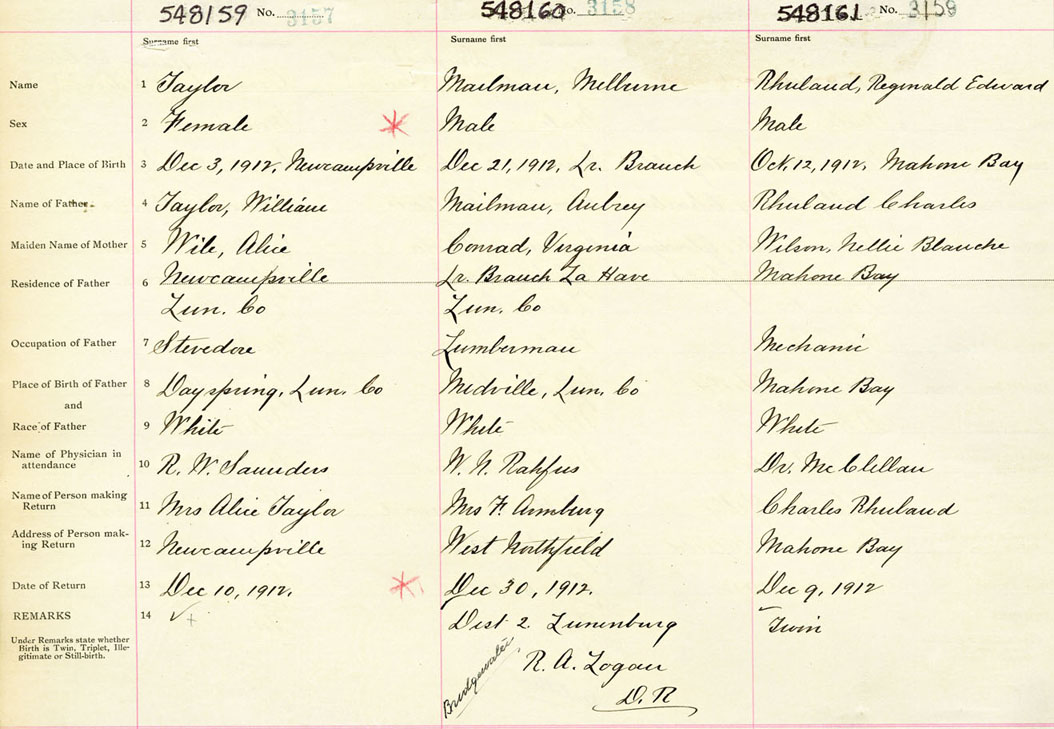 548159 No. 3157 548160 No. 3158 548161 No. 3159
Surname first Surname first Surname first
Name 1 Taylor Mailman, Melburne Rhuland, Reginald Edward
Sex 2 Female Male Male
Date and Place of Birth 3 Dec 3, 1912, Newcampville Dec 21, 1912, Lr. Branch Oct, 12, 1912, Mahone Bay
Name of Father 4 Taylor, William Mailman, Aubrey Rhuland Charles
Maiden Name of Mother 5 Wile, Alice Conrad, Virginia Wilson, Nellie Blanche
Residence of Father 6 Newcampville Lr. Branch La Have Mahone Bay
Lun. Co Lun. Co
Occupation of Father 7 Stevedore Lumberman Mechanic
Place of Birth of Father 8 Dayspring, Lun. Co Midville, Lun. Co Mahone Bay
and
Race of Father 9 White White White
Name of Physician in
attendance 10 R. W. Saunders W. N. Rahfus Dr. McClellan
Name of Person making
Return 11 Mrs Alice Taylor Mrs F. Armburg Charles Rhuland
Address of Person mak-
ing Return 12 Newcampville West Northfield Mahone Bay
Date of Return 13 Dec 10, 1912. Dec 30, 1912. Dec 9, 1912
REMARKS 14 Dist 2. Lunenburg Twin
Under Remarks state whether
Birth is Twin, Triplet, Ille-
gitimate or Still-birth.
Bridgewater, R. A. Logan
D. R